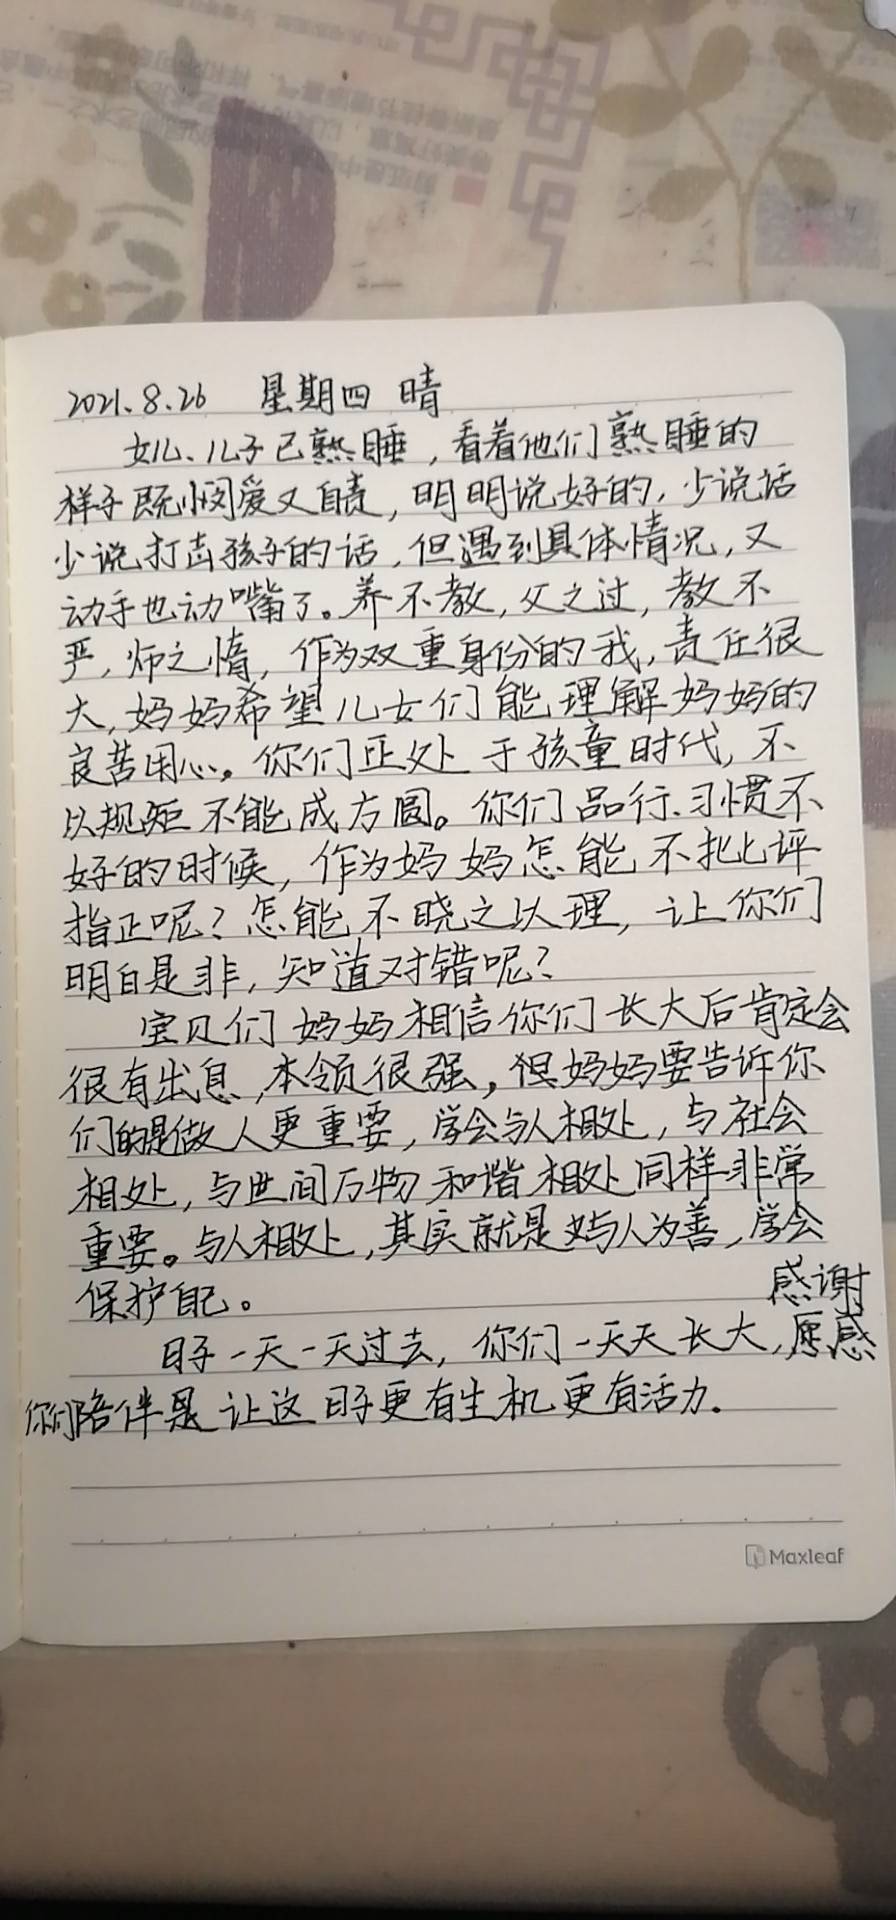 2021.8.26 星期四 晴
女儿、儿子已熟睡，看着他们熟睡的
样子既怜爱又自责，明明说好的，少说话
少说打击孩子的话，但遇到具体情况，又
动手也动嘴了。养不教，父之过，教不
严，师之惰，作为双重身份的我，责任很
大，妈妈希望儿女们能理解妈妈的
良苦用心。你们正处于孩童时代，不
以规矩不能成方圆。你们品行、习惯不
好的时候，作为妈妈怎能不批评
指正呢？怎能不晓之以理，让你们
明白是非，知道对错呢？
宝贝们妈妈相信你们长大后肯定会
很有出息，本领很强，但妈妈要告诉你
们的是做人更重要，学会与人相处，与社会
相处，与世间万物和谐相处同样非常
重要。与人相处，其实就是与人为善，学会
保护自己。
感谢
日子一天一天过去，你们一天天长大，愿感
你们陪伴是让这日子更有生机更有活力.
Maxleaf